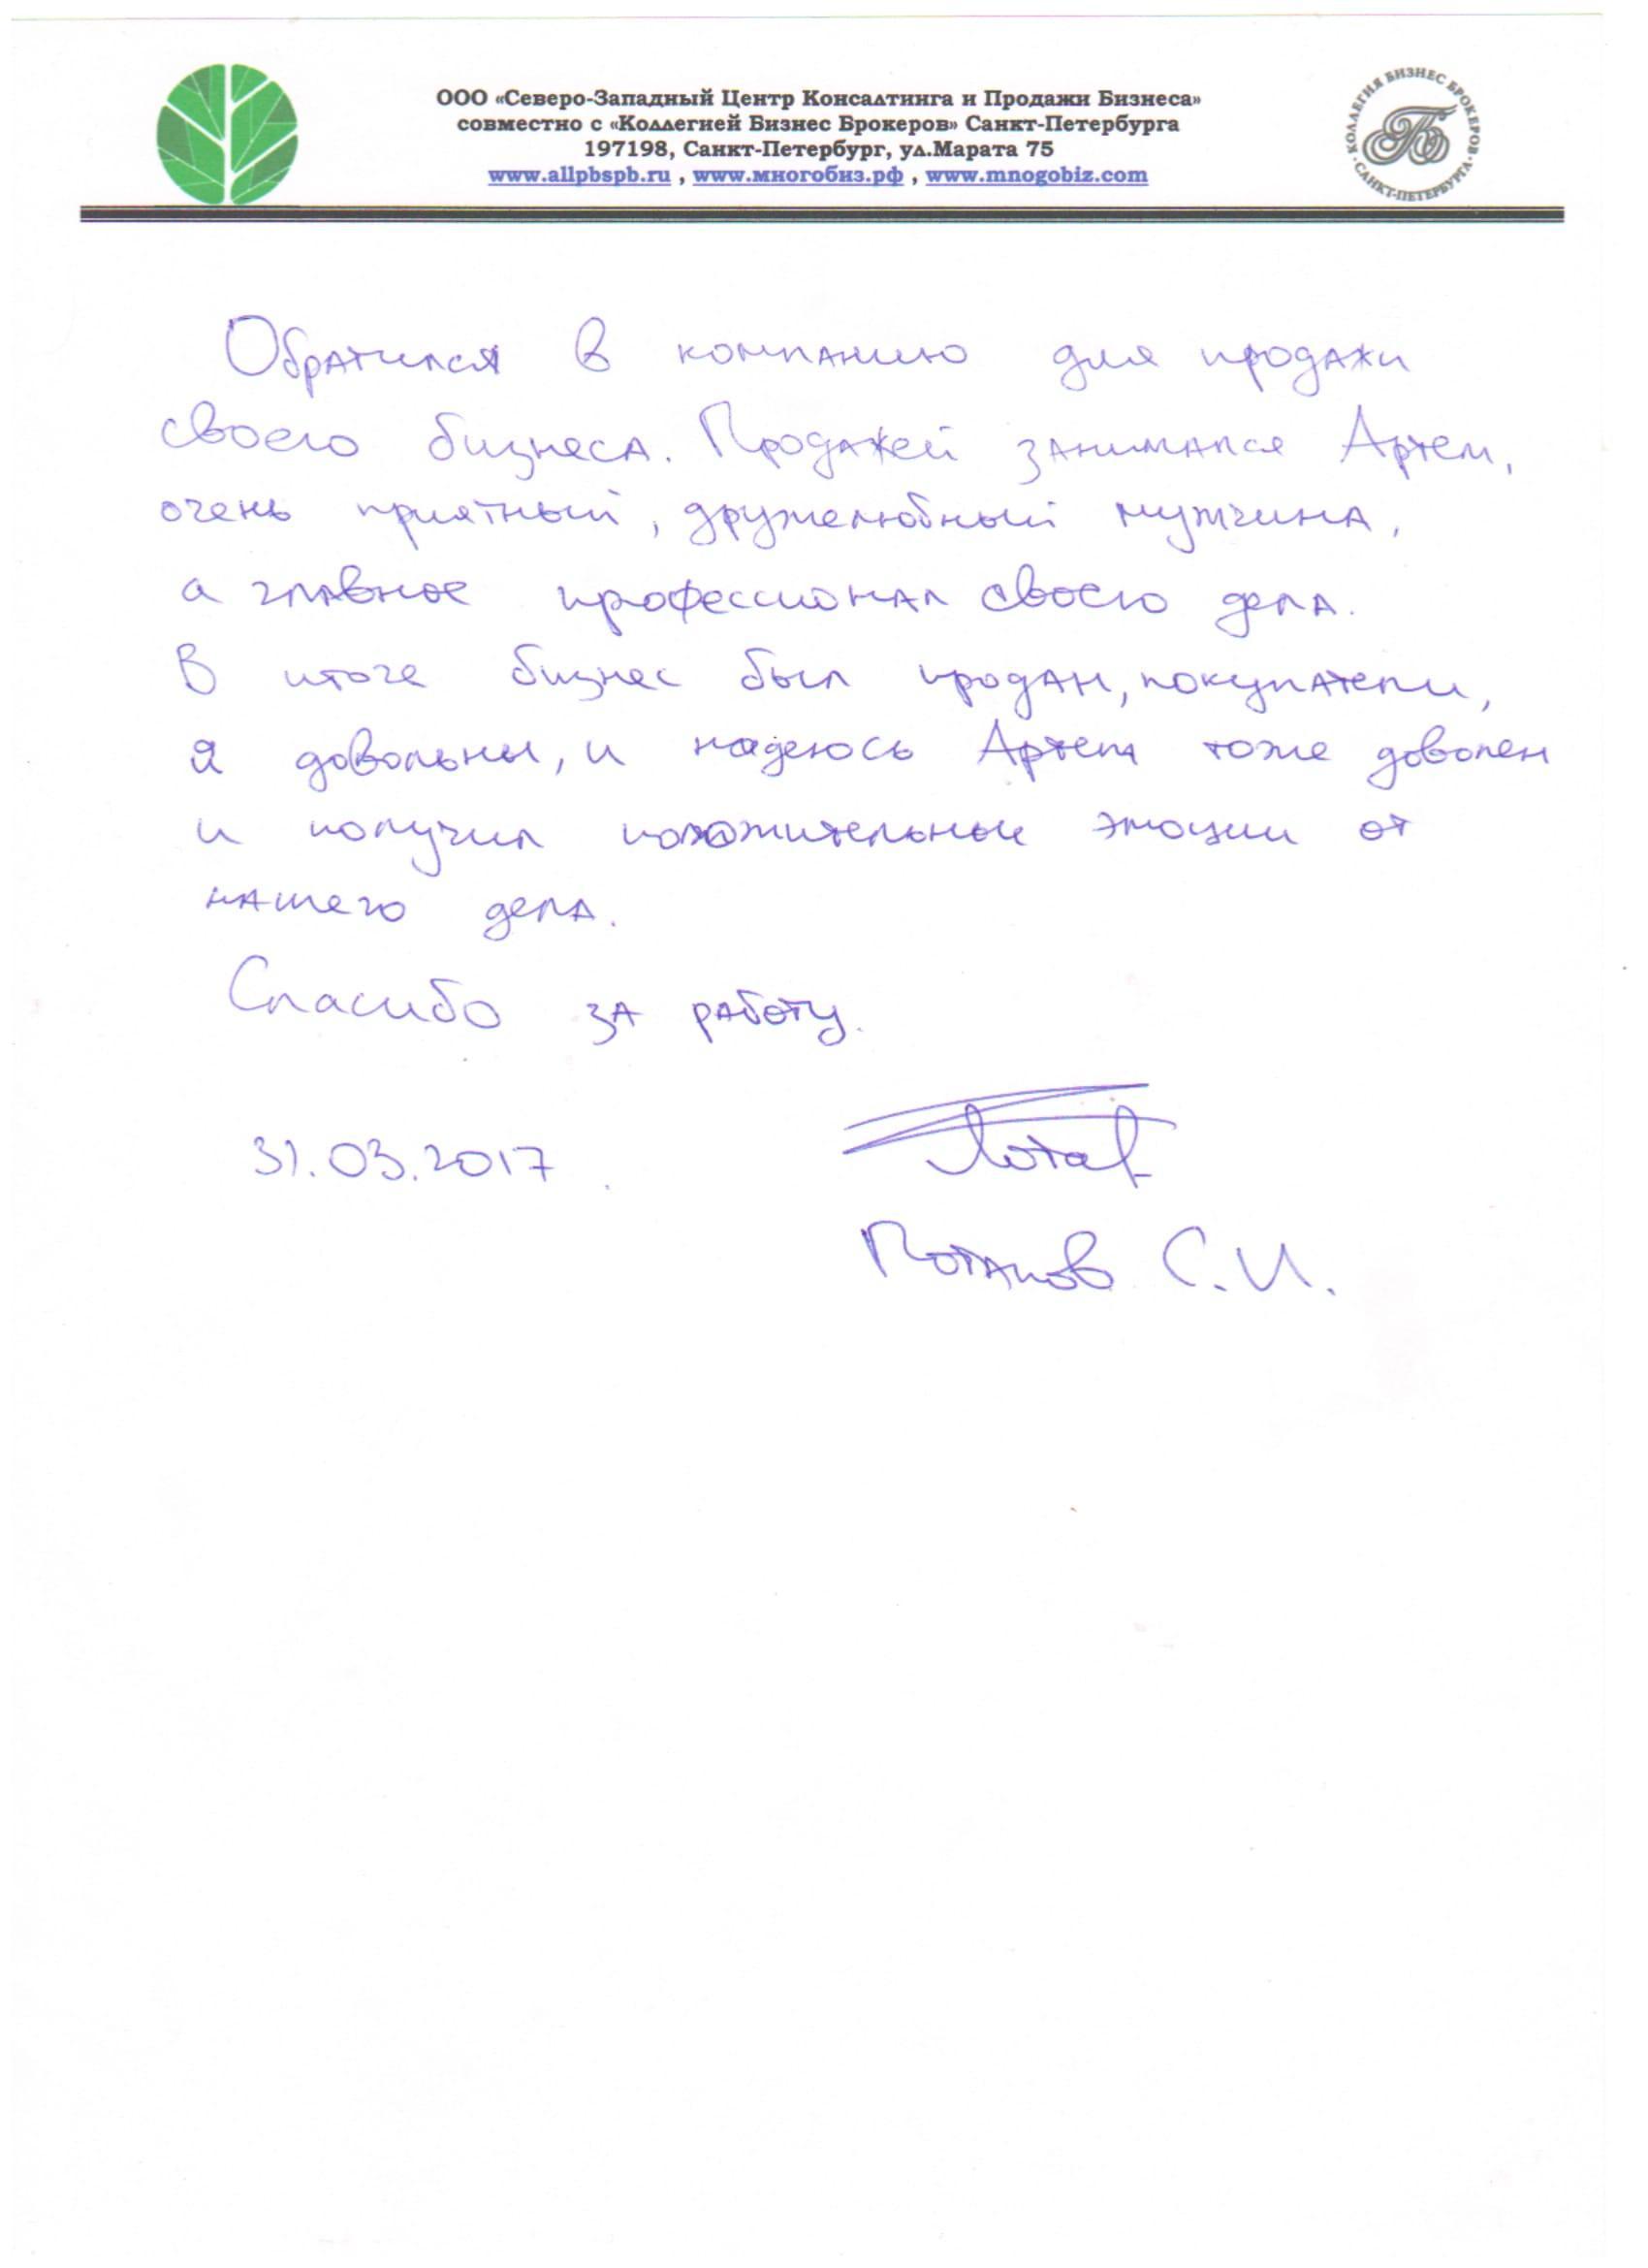 ООО «Северо-Западный Центр Консалтинга и Продажи Бизнеса»
совместно с «Коллегией Бизнес Брокеров» Санкт-Петербурга
197198, Санкт-Петербург, ул.Марата 75
www.allpbspb.ru , www.многобиз.рф , www.mnogobiz.com
КОЛЛЕГИЯ БИЗНЕС БРОКЕРОВ · САНКТ-ПЕТЕРБУРГА ·
Обратился в компанию для продажи
своего бизнеса. Продажей занимался Артем,
очень приятный, дружелюбный мужчина,
а главное профессионал своего дела.
В итоге бизнес был продан, покупатели,
я довольны, и надеюсь Артем тоже доволен
и получил положительные эмоции от
нашего дела.
Спасибо за работу.
31.03.2017
Потапов С.И.